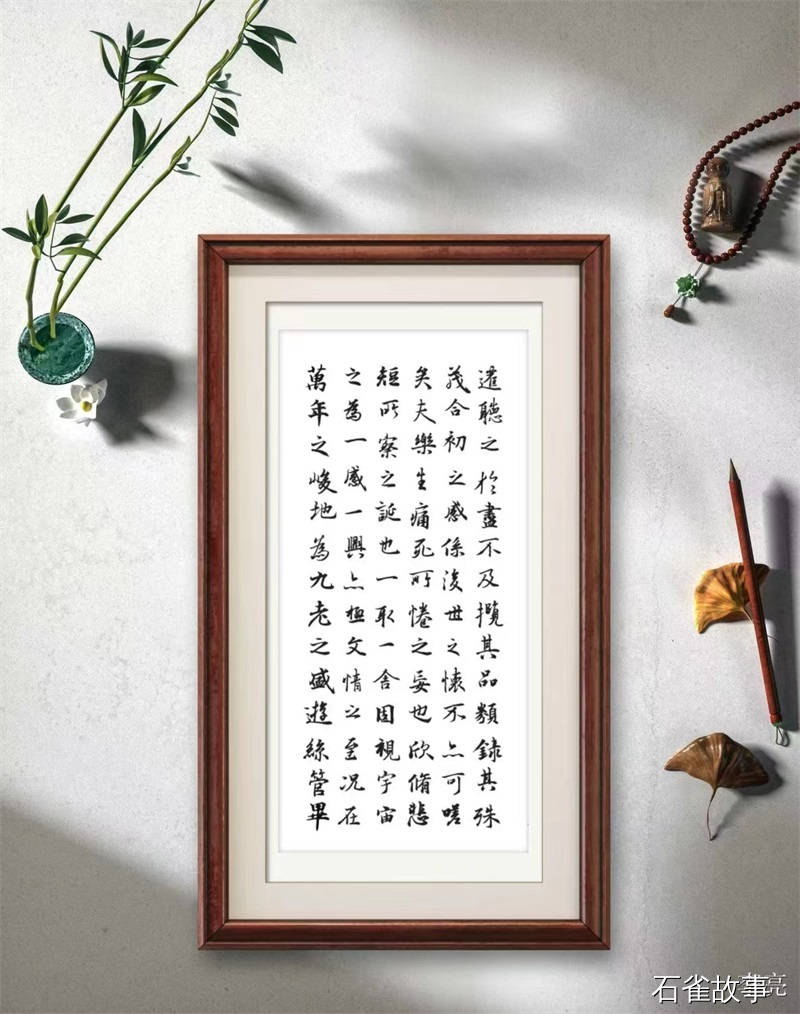 聽之於盡不及攬其品類錄其殊
合初之感係後世之懷不亦可嗟
矣夫樂生痛死所惓之妄也欣脩悲
短所察之誕也一取一舍固視宇宙
之為一感一興亦極文情之至况在
萬年之峻地為九老之盛遊絲管畢
石雀故事
亮